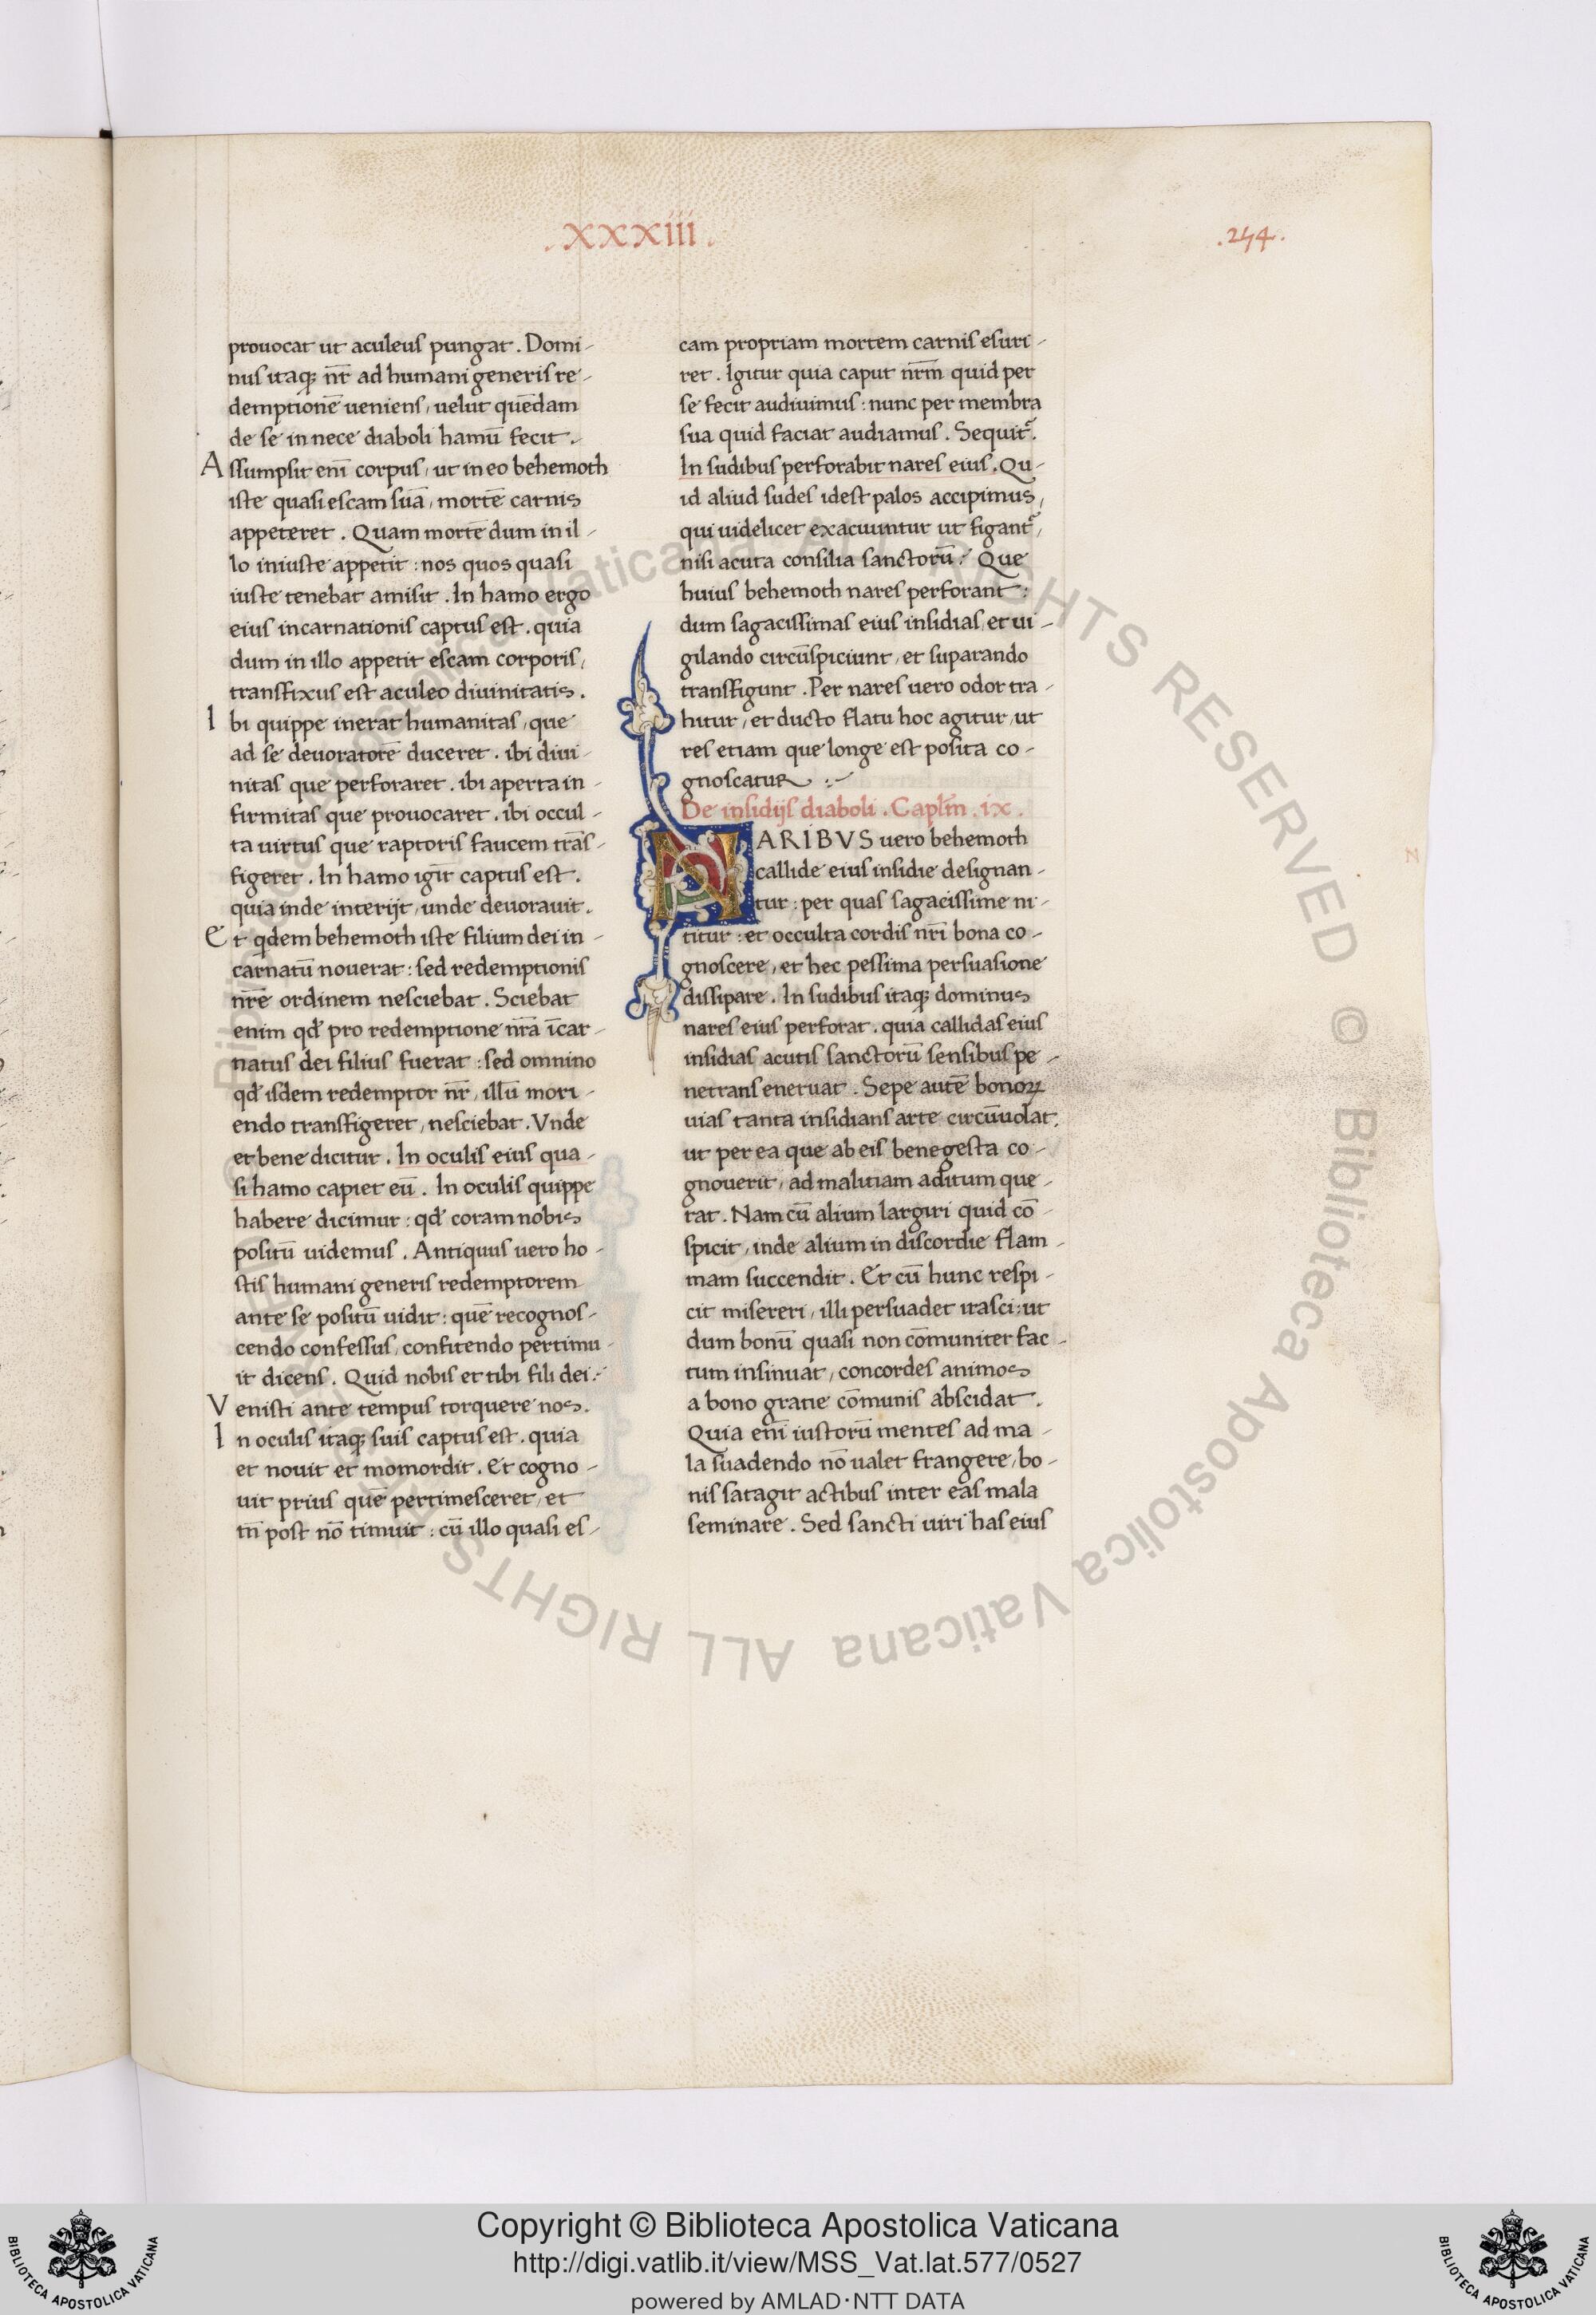 .XXXIII.
.254.
prouocat ut aculeus pungat. Domi-
nus itaq; nr̄ ad humani generis re-
demptionē ueniens, uelut quēdam
de se in necē diaboli hamū fecit.
Assumpsit eni̅ corpus, ut in eo behemoth
iste quasi escam suā, mortē carnis
appeteret. Quam mortē dum in il-
lo iniuste appetit: nos quos quasi
iuste tenebat amisit. In hamo ergo
eius incarnationis captus est. quia
dum in illo appetit escam corporis,
transfixus est aculeo diuinitatis.
Ibi quippe inerat humanitas, que
ad se deuoratorē duceret. ibi diui-
nitas que perforaret. ibi aperta in-
firmitas que prouocaret. ibi occul-
ta uirtus que raptoris faucem trās-
figeret. In hamo igit̄ captus est.
quia inde interijt, unde deuorauit.
Et qdem behemoth iste filium dei in-
carnatū nouerat: sed redemptionis
nr̄e ordinem nesciebat. Sciebat
enim qd̄ pro redemptione nr̄a īcar-
natus dei filius fuerat: sed omnino
qd̄ isdem redemptor nr̄, illū mori-
endo transfigeret, nesciebat. Vnde
et bene dicitur. In oculis eius qua-
si hamo capiet eū. In oculis quippe
habere dicimur: qd̄ coram nobis
positū uidemus. Antiquus uero ho-
stis humani generis redemptorem
ante se positū uidit: quē recognos-
cendo confessus, confitendo pertimu-
it dicens. Quid nobis et tibi fili dei:
Venisti ante tempus torquere nos.
In oculis itaq; suis captus est. quia
et nouit et momordit. Et cogno-
uit prius quē pertimesceret, et
tn̄ post nō timuit: cū illo quasi es-
cam propriam mortem carnis esuri-
ret. Igitur quia caput nrm̄ quid per
se fecit audiuimus: nunc per membra
sua quid faciat audiamus. Sequit᷑.
In sudibus perforabit nares eius. Qu-
id aliud sudes idest palos accipimus,
qui uidelicet exacuuntur ut figant᷑,
nisi acuta consilia sanctorū? Que
huius behemoth nares perforant:
dum sagacissimas eius insidias, et ui-
gilando circūspiciunt, et suparando
transfigunt. Per nares uero odor tra-
hitur, et ducto flatu hoc agitur, ut
res etiam que longe est posita co-
gnoscatur:-
De insidijs diaboli. Caplm̄. ix.
NARIBVS uero behemoth
callide eius insidie designan-
tur: per quas sagacissime ni-
titur: et occulta cordis nr̄i bona co-
gnoscere, et hec pessima persuasione
dissipare. In sudibus itaq; dominus
nares eius perforat. quia callidas eius
insidias acutis sanctorū sensibus pe-
netrans eneruat. Sepe autē bonoꝝ
uias tanta insidians arte circūuolat,
ut per ea que ab eis bene gesta co-
gnouerit, ad malitiam aditum que-
rat. Nam cū alium largiri quid cō-
spicit, inde alium in discordie flam-
mam succendit. Et cū hunc respi-
cit misereri, illi persuadet irasci: ut
dum bonū quasi non cōmuniter fac-
tum insinuat, concordes animos
a bono gratie cōmunis abscidat.
Quia eni̅ iustorū mentes ad ma-
la suadendo nō ualet frangere, bo-
nis satagit actibus inter eas mala
seminare. Sed sancti uiri has eius
N
Copyright © Biblioteca Apostolica Vaticana
http://digi.vatlib.it/view/MSS_Vat.lat.577/0527
powered by AMLAD·NTT DATA
BIBLIOTECA APOSTOLICA VATICANA
BIBLIOTECA APOSTOLICA VATICANA
© Biblioteca Apostolica Vaticana ALL RIGHTS RESERVED
© Biblioteca Apostolica Vaticana ALL RIGHTS